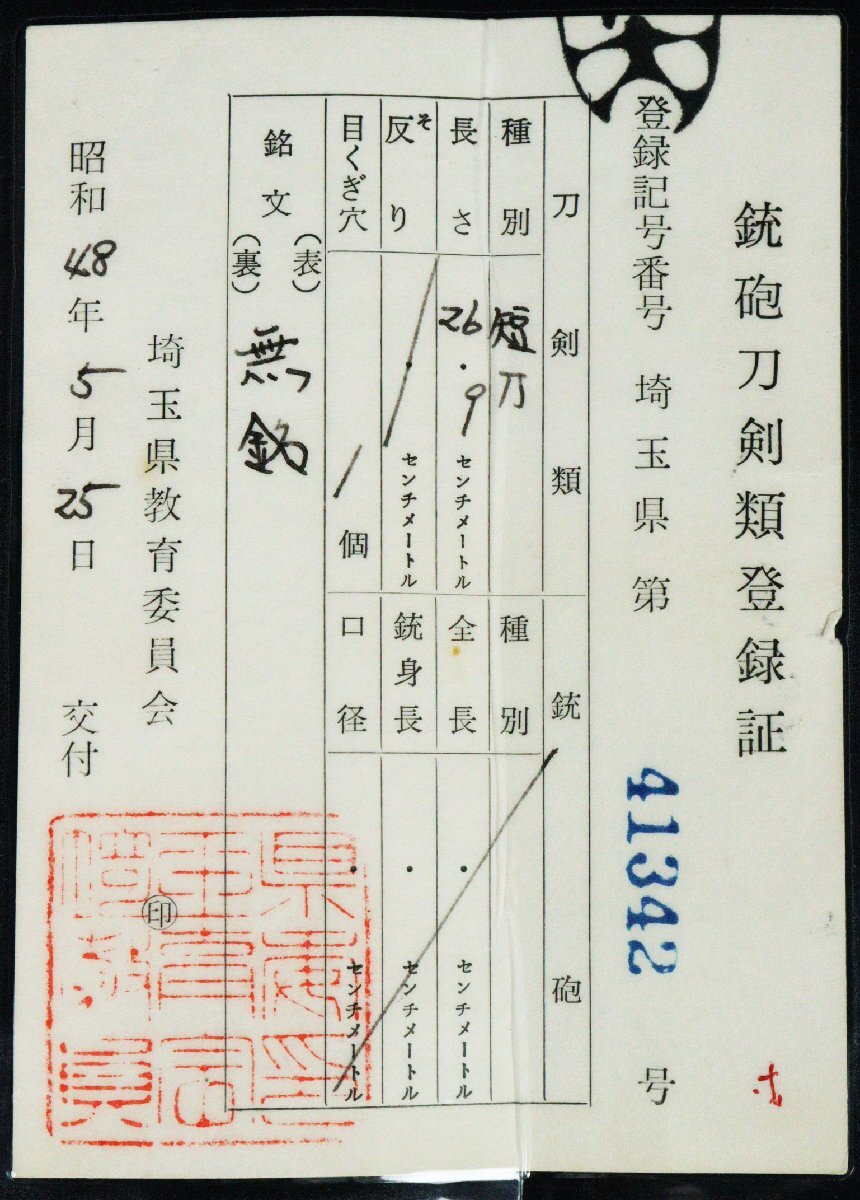 銃砲刀剣類登録証
登録記号番号 埼玉県第 41342 号
刀剣類
種別 短刀
長さ 26.9 センチメートル
反り そ ・ センチメートル
目くぎ穴 1個
銘文 (表) (裏) 無銘
銃砲
種別
全長 ・ センチメートル
銃身長 ・ センチメートル
口径 ・ センチメートル
埼玉県教育委員会 印
昭和48年5月25日 交付